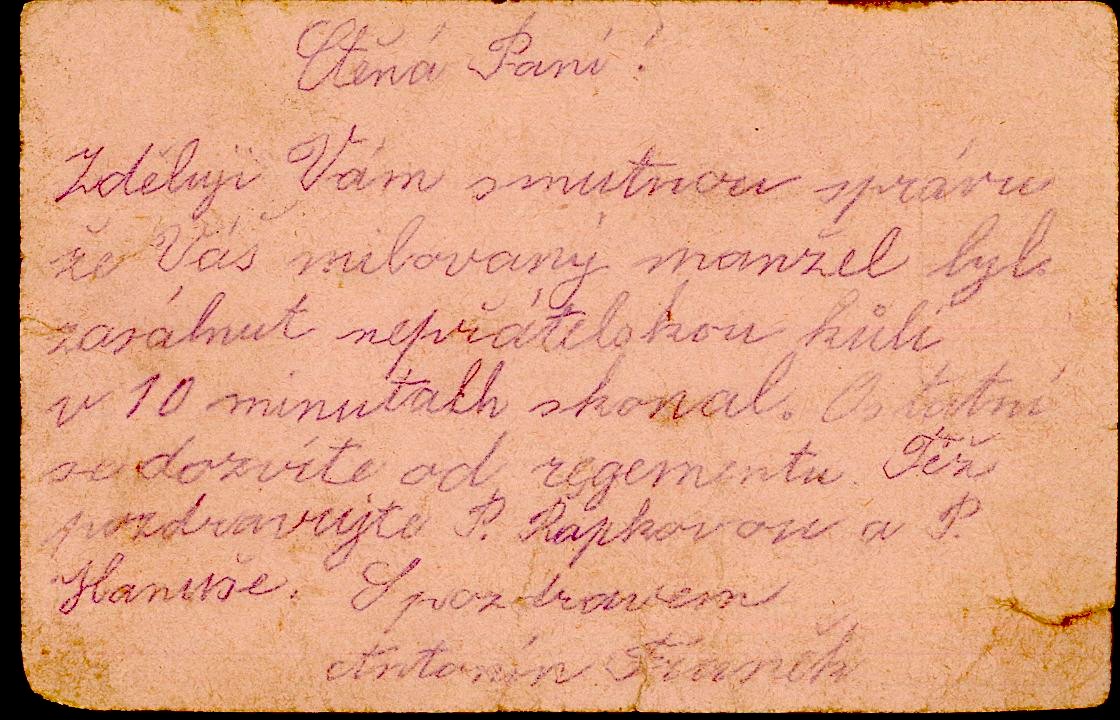 Ctěná Paní!
Zděluji Vám smutnou správu
že Váš milovaný manžel byl
zasálnut nepřátelskou kůlí
v 10 minutách skonal. Ostatní
se dozvíte od regementu. Též
pozdravujte P. Rapkovou a P.
Hanuše. S pozdravem
Antonín